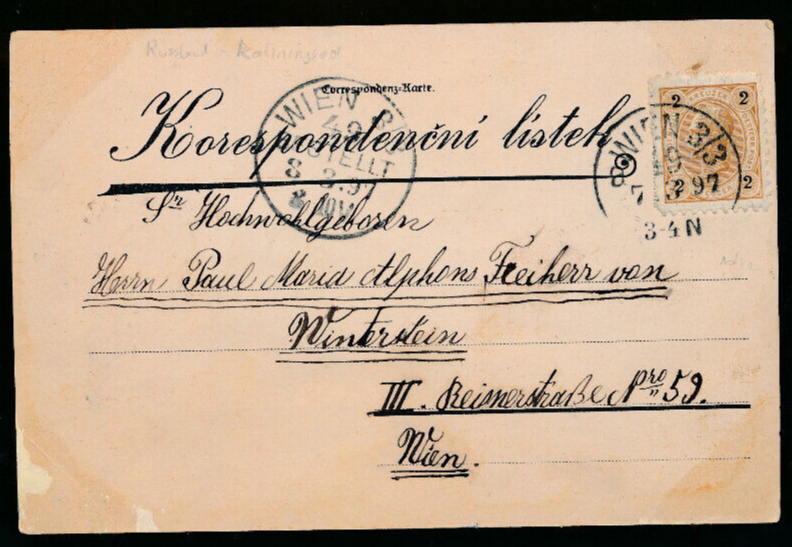 Correspondenz-Karte.
Korespondenční lístek
WIEN 3/3
49
7 3 97
3-4N
2 2
2 2
WIEN
49
BESTELLT
8 3.97
Sr Hochwohlgeboren
Herrn Paul Maria Alphons Freiherr von
Winterstein
III. Reisnerstraße Nro 59.
Wien.